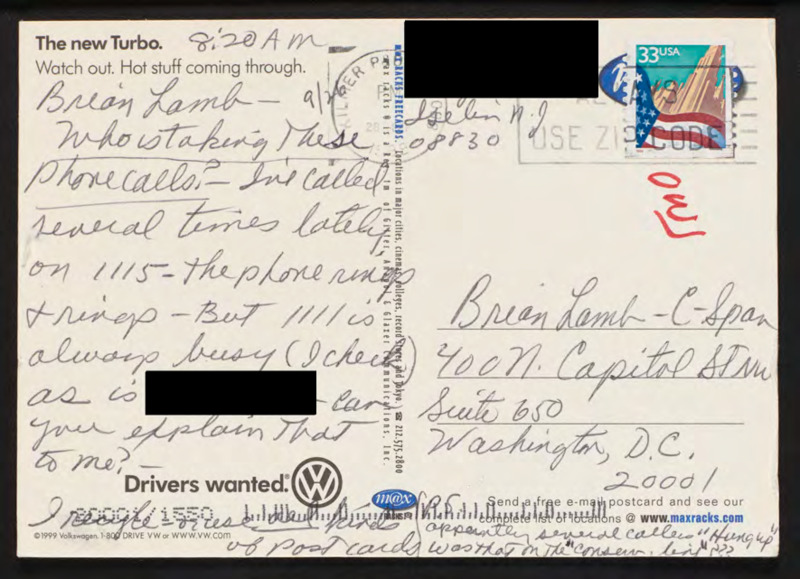 The new Turbo. 8:20 AM
Watch out. Hot stuff coming through.
Brian Lamb – 9/2
Who is taking These
Phone calls? – I've called
several times lately
on 1115 – the phone rings
& rings – But 1111 is
always busy (I check)
as is
– can
you explain that
to me? –
Drivers wanted.
I recycle – use all kinds
of Post cards
20001/1550
©1999 Volkswagen. 1-800 DRIVE VW or WWW.VW.COM
KILMER
max racks FREECARDS
Locations in major cities, cinemas, colleges, record stores and Tokyo. ☎ 212.575.2800
Iselin NJ
08830
33 USA
ALWAYS
USE ZIP CODE
Brian Lamb – C-Span
400 N. Capitol St NW
Suite 650
Washington, D.C.
20001
m@x
Send a free e-mail postcard and see our
complete list of locations @ www.maxracks.com
P.S.
apparently several callers "Hung up"
was that on the "conserv. line"???